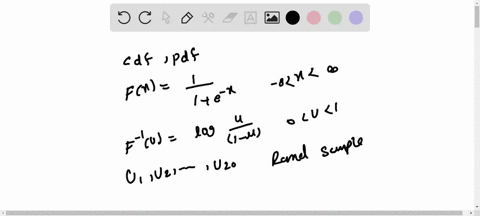 cdf, pdf
F(x) = 1/(1+e^-x)   -∞<x<∞
F^-1(u) = log u/(1-u)   0<u<1
U1, U2, ..., U20   Rand Sample